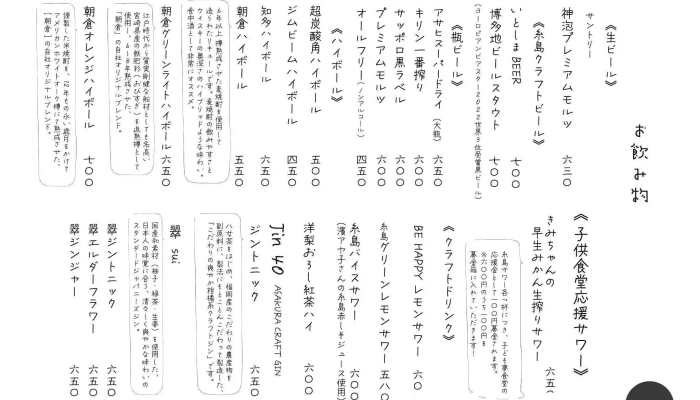 お飲み物
《生ビール》
サントリー
神泡プレミアムモルツ 六三〇
《糸島クラフトビール》
いとしまBEER 七〇〇
博多地ビールスタウト 七〇〇
(ヨーロピアンビアスター2022世界3位受賞黒ビール)
《瓶ビール》
アサヒスーパードライ(大瓶) 六五〇
キリン一番搾り 六〇〇
サッポロ黒ラベル 六〇〇
プレミアムモルツ 六〇〇
オールフリー(ノンアルコール) 四五〇
《ハイボール》
超炭酸角ハイボール 五〇〇
ジムビームハイボール 四五〇
知多ハイボール 五五〇
朝倉ハイボール 五五〇
6年以上樽熟成させた麦焼酎を使用して
造られたリキュールです。麦焼酎の飲みやすさと
ウイスキーの奥深さのハイブリッドような味わい。
食中酒として非常にオススメ。
朝倉グリーンライトハイボール 六五〇
江戸時代から質実剛健な船材としても名高い
宮崎県産の飫肥杉(おびすぎ)を追熟樽として
使用し、5〜8年熟成させた、
「朝倉」の自社オリジナルブレンド。
朝倉オレンジハイボール 七〇〇
謹製した米焼酎を、12年もの永い歳月をかけて
アメリカンホワイトオーク樽にて熟成させた、
「朝倉」の自社オリジナルブレンド。
《子供食堂応援サワー》
きみちゃんの
早生みかん生搾りサワー 六五
糸島サワー各一杯につき、子ども夢食堂の
応援金として一〇〇円募金されます。
※六〇〇円のうち一〇〇円を
募金箱に入れていただきます!
《クラフトドリンク》
BE HAPPY レモンサワー 六〇
糸島グリーンレモンサワー 五八〇
糸島バイスサワー 六〇〇
(濱アヤ子さんの糸島赤しそジュース使用)
洋梨おろし紅茶ハイ 六〇〇
Jin 40 ASAKURA CRAFT GIN
ジントニック 六五〇
八女茶をはじめ、福岡産のこだわりの農産物を
副原料に、製法にもとことんこだわって製造した、
「こだわりの爽やか柑橘系クラフトジン」です。
翠 sui
国産和素材(柚子・緑茶・生姜)を使用した、
日本人の味覚に合う、清々しく爽やかな味わいの
スタンダードジャパニーズジン。
翠ジントニック 六五〇
翠エルダーフラワー 六五〇
翠ジンジャー 六五〇